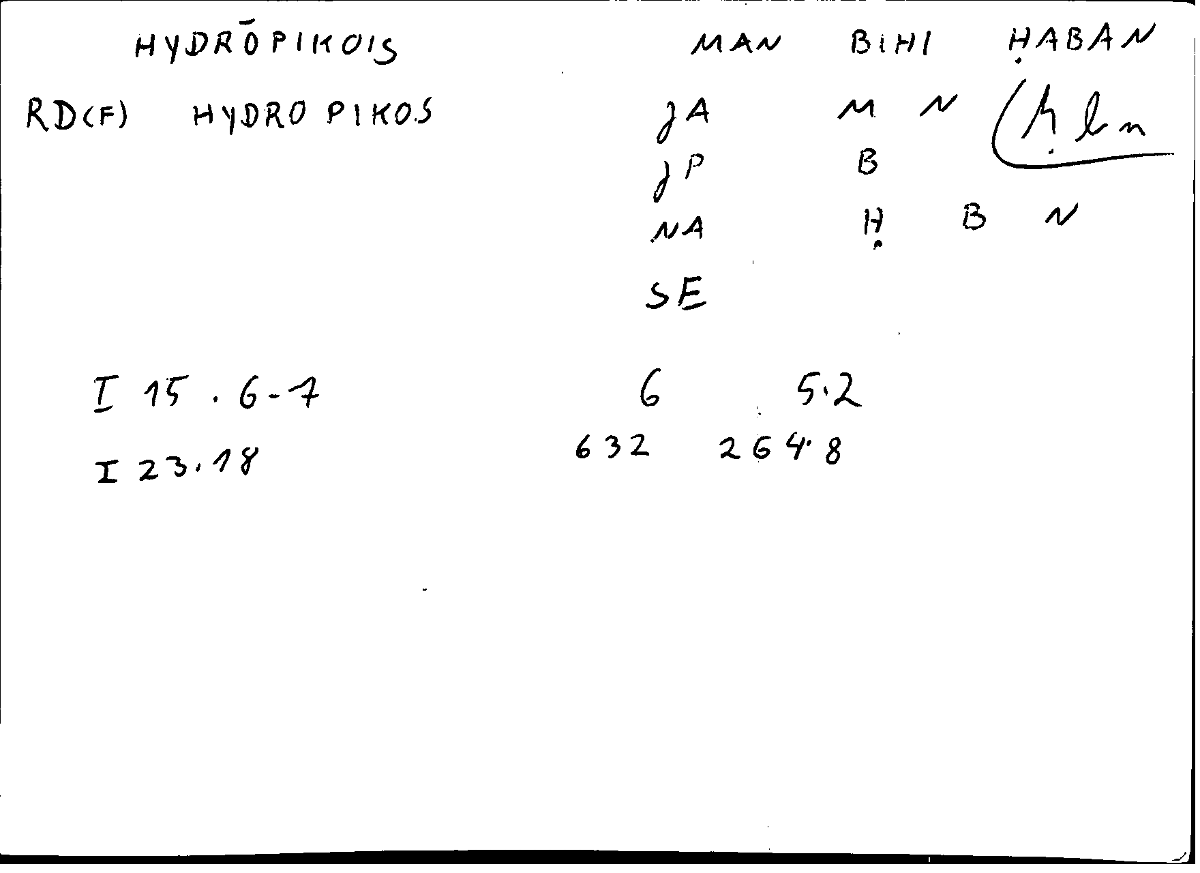 HYDRŌPIKOIS MAN BIHI ḤABAN
RD(F) HYDROPIKOS JA M N (ḥbn
JP B
NA Ḥ B N
SE
I 15.6-7 6 5.2
I 23.18 632 264.8